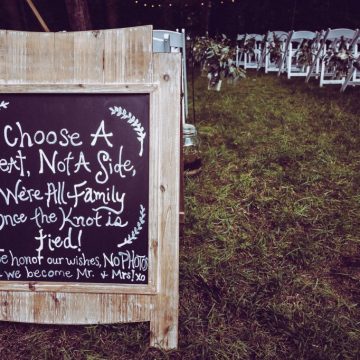 Choose A
eat, Not A Side,
We're All Family
nce the Knot is
tied!
e honor our wishes, NO PHOTOS
we become Mr. + Mrs! xo